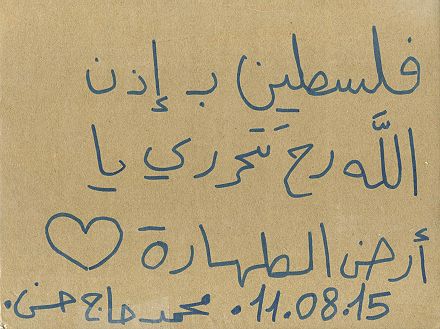 فلسطين بـ إذن
اللَّه رح تَتحرري يا
أرض الطهارة ♡
11.08.15. محمد حاج حسن.